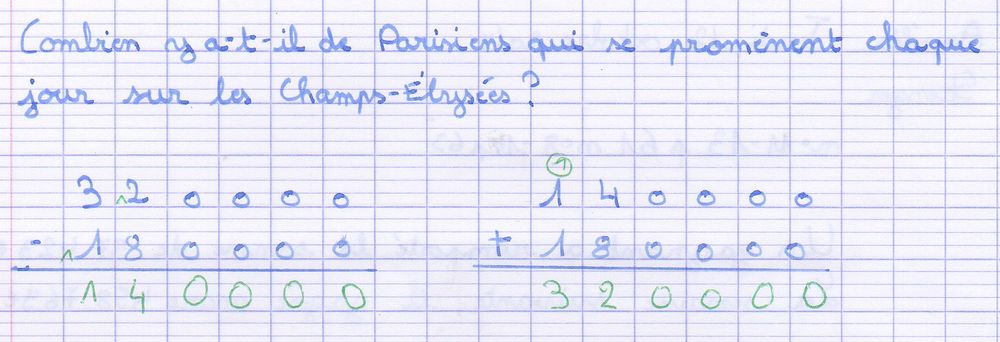 Combien y a-t-il de Parisiens qui se promènent chaque
jour sur les Champs-Élysées ?
1
3 12 0 0 0 0 1 4 0 0 0 0
- 1 1 8 0 0 0 0 + 1 8 0 0 0 0
1 4 0 0 0 0 3 2 0 0 0 0